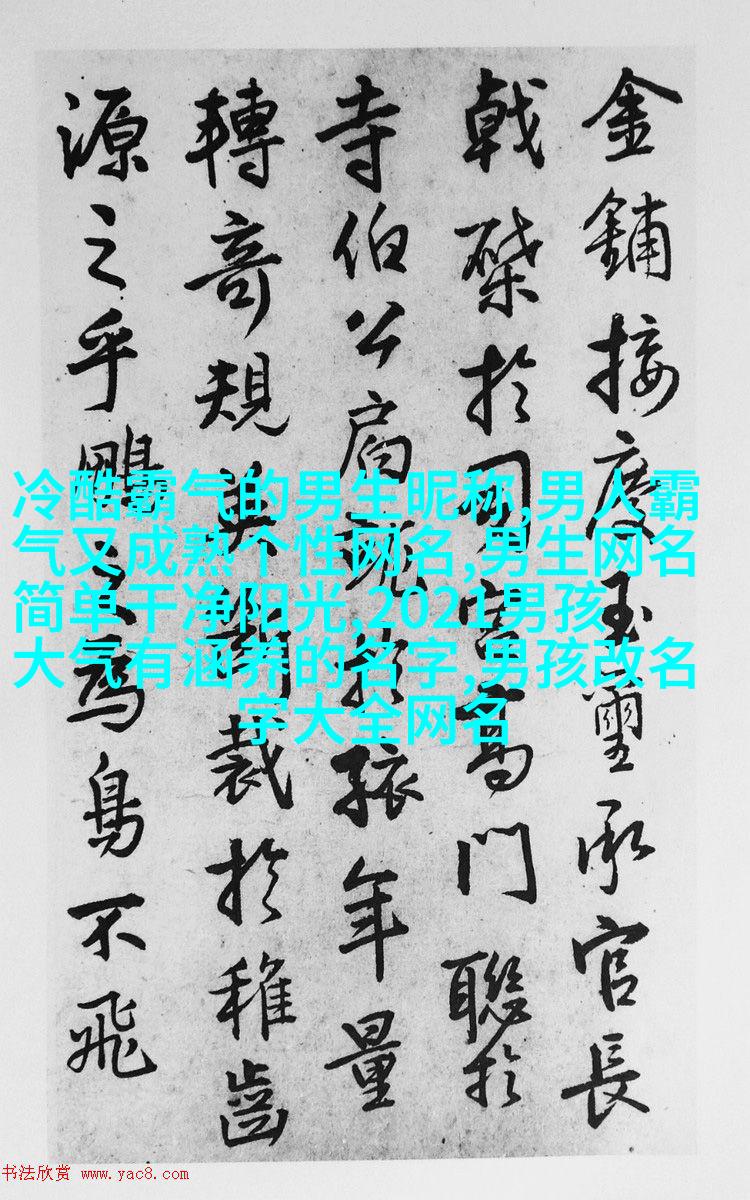 金鋪接慶玉璽承官長
戟棨於司宮高門聯於
寺伯公肩琬於孩年量
轉奇規與制裁於稚齒
源之乎鵬之為鳥不飛
冷酷霸气的男生昵称,男人霸
气又成熟个性网名,男生网名
简单干净阳光,2021男孩
大气有涵养的名字,男孩改名
字大全网名
书法欣赏 www.yac8.com